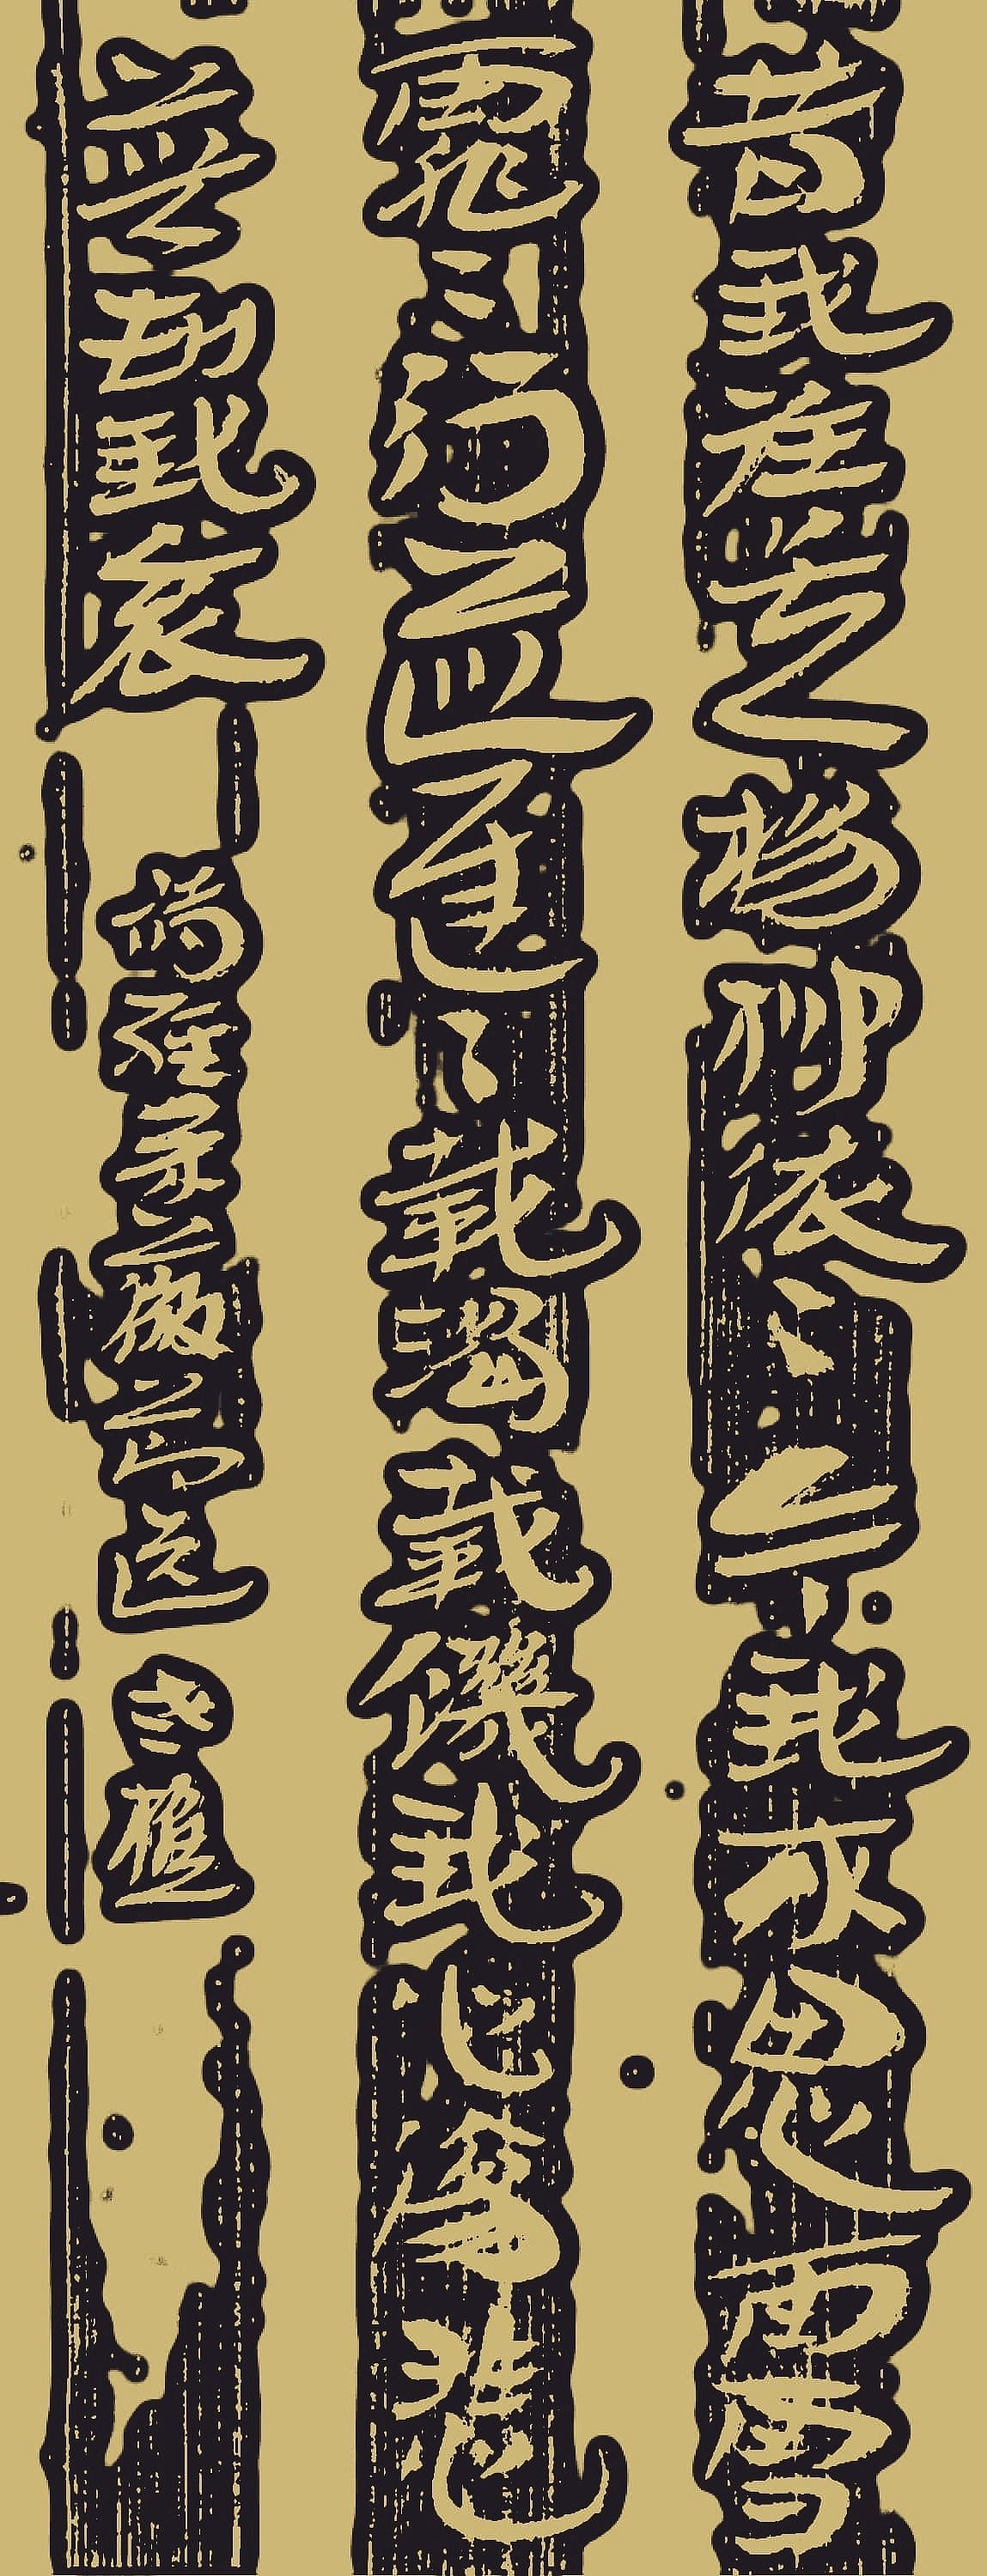 昔我往矣楊柳依〻今我來思雨雪
霏〻行道遲〻載渴載饑我心傷悲
莫知我哀 經采薇